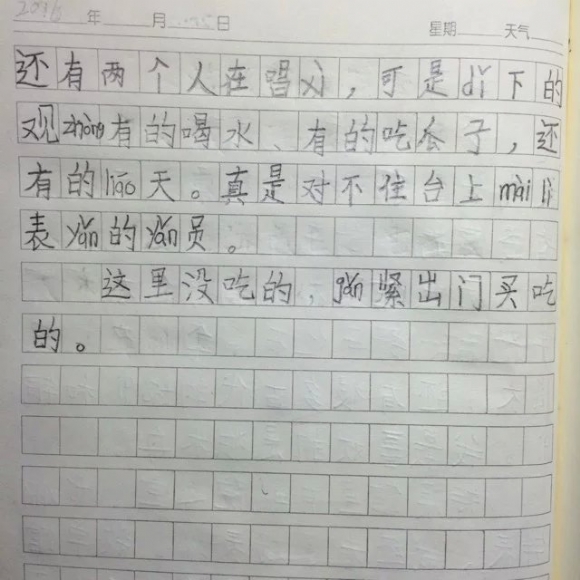 2016 年 月 日 星期 天气
还有两个人在唱xì，可是dǐ下的
观zhòng有的喝水、有的吃瓜子，还
有的liáo天。真是对不住台上mài lì
表yǎn的yǎn员。
这里没吃的，gǎn紧出门买吃
的。